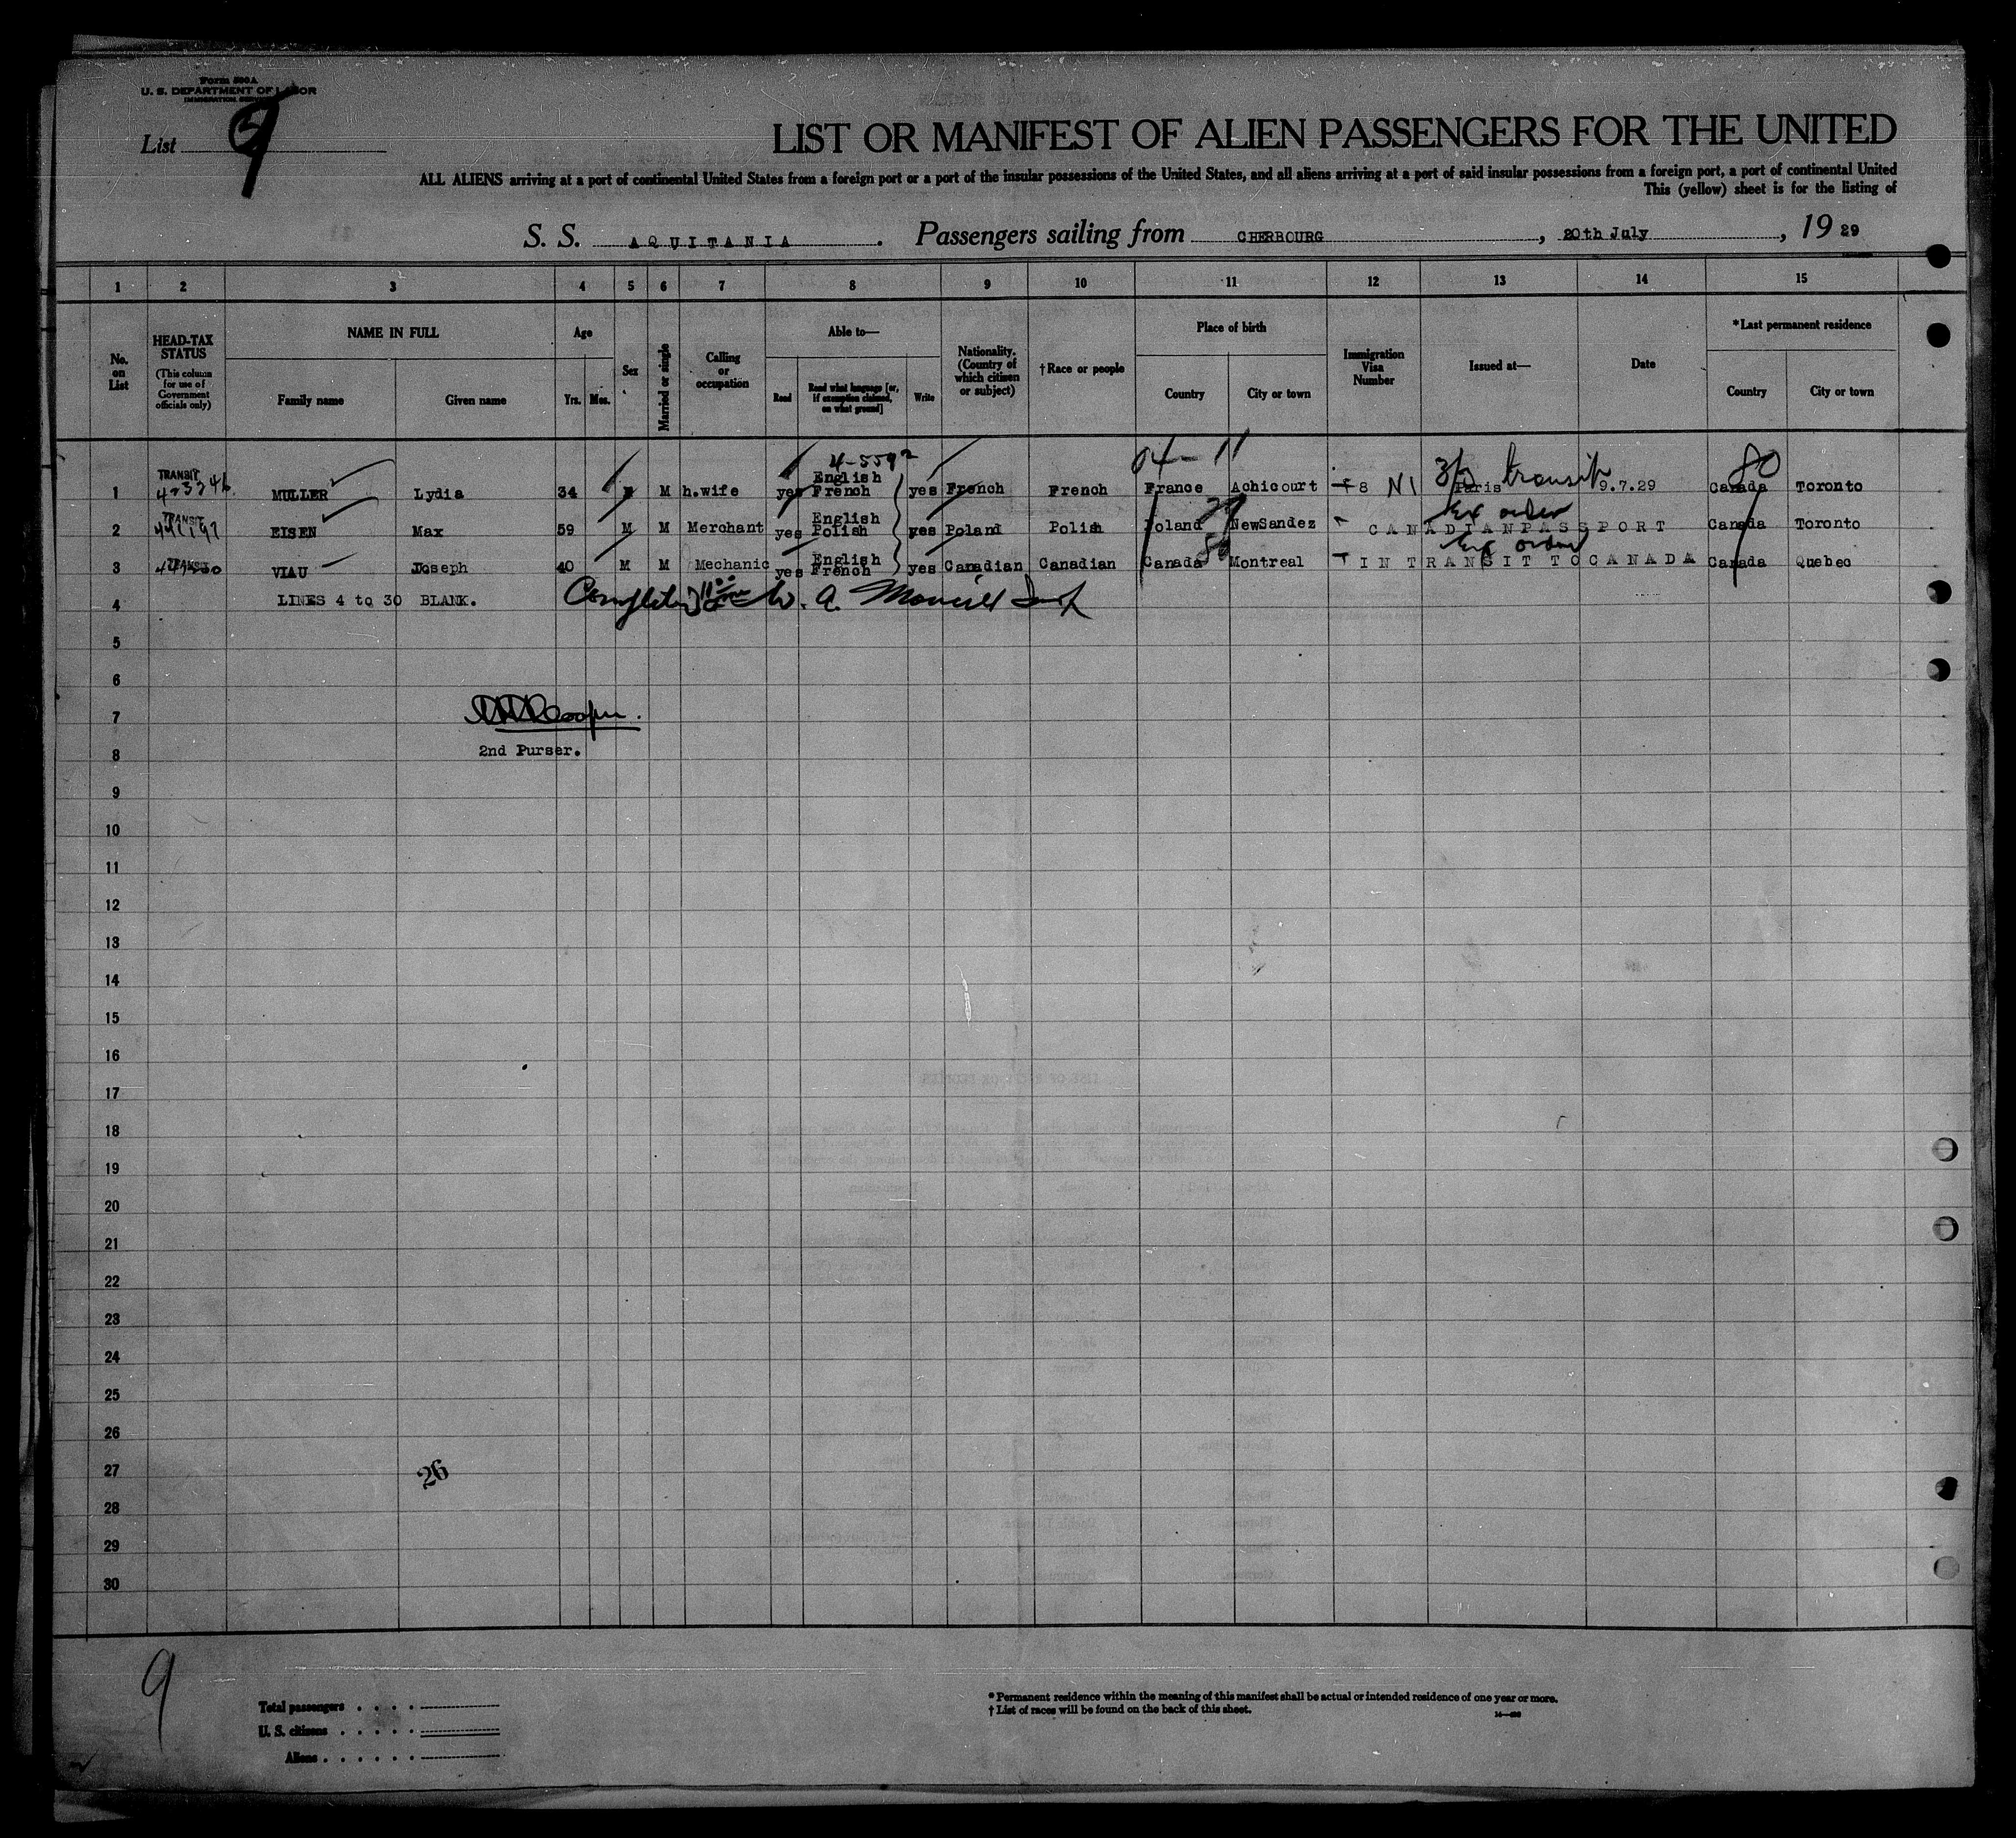 Form 500A
U. S. DEPARTMENT OF LABOR
IMMIGRATION SERVICE
List 9
LIST OR MANIFEST OF ALIEN PASSENGERS FOR THE UNITED
ALL ALIENS arriving at a port of continental United States from a foreign port or a port of the insular possessions of the United States, and all aliens arriving at a port of said insular possessions from a foreign port, a port of continental United
This (yellow) sheet is for the listing of
S. S. AQUITANIA. Passengers sailing from CHERBOURG, 20th July, 19 29
1 2 3 4 5 6 7 8 9 10 11 12 13 14 15
No. on List
HEAD-TAX STATUS (This column for use of Government officials only)
NAME IN FULL
Family name Given name
Age
Yrs. Mos.
Sex
Married or single
Calling or occupation
Able to—
Read Read what language [or, if exemption claimed, on what ground] Write
Nationality. (Country of which citizen or subject)
†Race or people
Place of birth
Country City or town
Immigration Visa Number
Issued at—
Date
*Last permanent residence
Country City or town
4-559 04-11 3/3 transit 80
1 TRANSIT MULLER Lydia 34 M h.wife yes English French yes French French France Achicourt 8 NI Paris 9.7.29 Canada Toronto
Ex order
2 TRANSIT EISEN Max 59 M M Merchant yes English Polish yes Poland Polish Poland NewSandez CANADIAN PASSPORT Canada Toronto
Ex order
3 TRANSIT VIAU Joseph 40 M M Mechanic yes English French yes Canadian Canadian Canada Montreal IN TRANSIT TO CANADA Canada Quebec
4 LINES 4 to 30 BLANK. Completed W. A.
5
6
7 Cooper.
8 2nd Purser.
9
10
11
12
13
14
15
16
17
18
19
20
21
22
23
24
25
26
27 26
28
29
30
9
Total passengers . . . .
U. S. citizens . . . . .
Aliens . . . . . .
* Permanent residence within the meaning of this manifest shall be actual or intended residence of one year or more.
† List of races will be found on the back of this sheet.